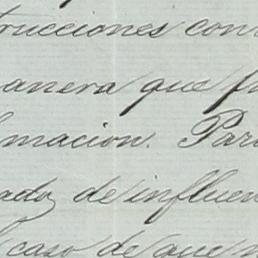 trucciones con
anera que f
macion. Par
ado, de influen
caso de que